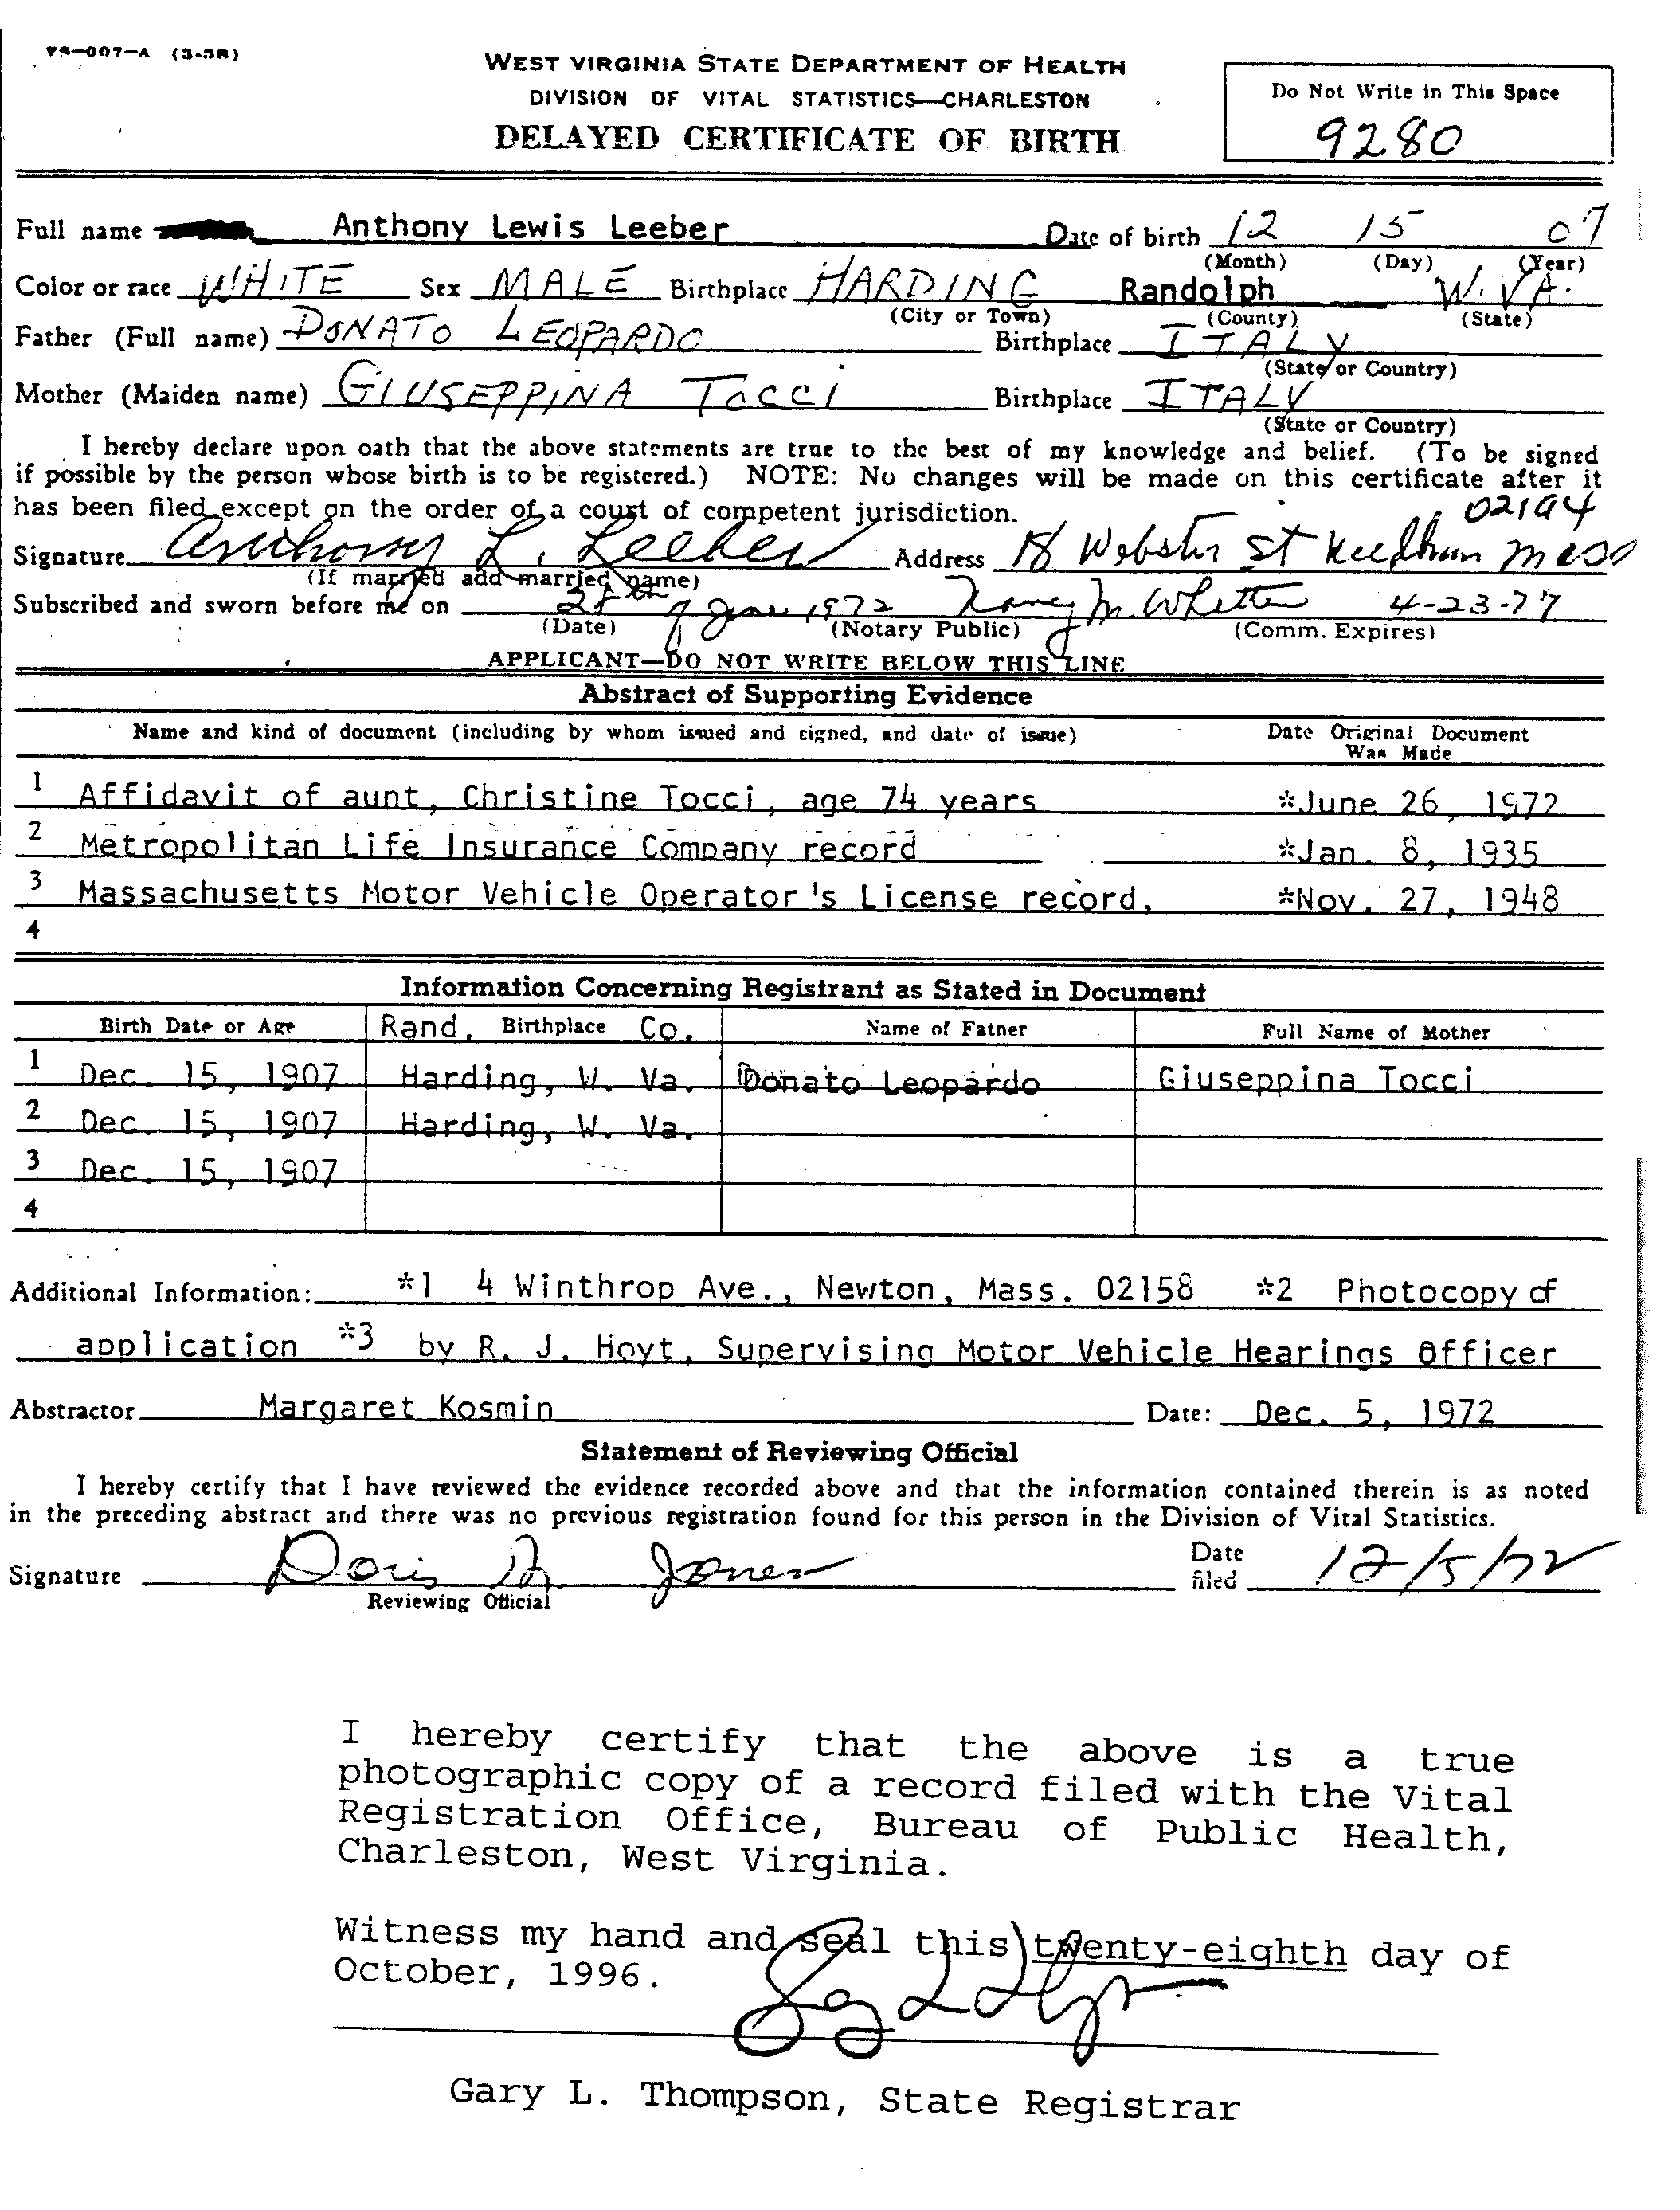 VS-007-A (3-58)
WEST VIRGINIA STATE DEPARTMENT OF HEALTH
DIVISION OF VITAL STATISTICS—CHARLESTON
DELAYED CERTIFICATE OF BIRTH
Do Not Write in This Space
9280
Full name Anthony Lewis Leeber Date of birth 12 15 07
(Month) (Day) (Year)
Color or race WHITE Sex MALE Birthplace HARDING Randolph W. VA.
(City or Town) (County) (State)
Father (Full name) DONATO LEOPARDO Birthplace ITALY
(State or Country)
Mother (Maiden name) GIUSEPPINA TOCCI Birthplace ITALY
(State or Country)
I hereby declare upon oath that the above statements are true to the best of my knowledge and belief. (To be signed
if possible by the person whose birth is to be registered.) NOTE: No changes will be made on this certificate after it
has been filed except on the order of a court of competent jurisdiction.
02194
Signature Anthony L. Leeber Address 18 Webster St Needham Mass
(If married add married name)
Subscribed and sworn before me on June 1972 Nancy M. 4-23-77
(Date) (Notary Public) (Comm. Expires)
APPLICANT—DO NOT WRITE BELOW THIS LINE
Abstract of Supporting Evidence
Name and kind of document (including by whom issued and signed, and date of issue) Date Original Document
Was Made
1 Affidavit of aunt, Christine Tocci, age 74 years *June 26, 1972
2 Metropolitan Life Insurance Company record *Jan. 8, 1935
3 Massachusetts Motor Vehicle Operator's License record. *Nov. 27, 1948
4
Information Concerning Registrant as Stated in Document
Birth Date or Age Rand. Birthplace Co. Name of Father Full Name of Mother
1 Dec. 15, 1907 Harding, W. Va. Donato Leopardo Giuseppina Tocci
2 Dec. 15, 1907 Harding, W. Va.
3 Dec. 15, 1907
4
Additional Information: *1 4 Winthrop Ave., Newton, Mass. 02158 *2 Photocopy of
application *3 by R. J. Hoyt, Supervising Motor Vehicle Hearings Officer
Abstractor Margaret Kosmin Date: Dec. 5, 1972
Statement of Reviewing Official
I hereby certify that I have reviewed the evidence recorded above and that the information contained therein is as noted
in the preceding abstract and there was no previous registration found for this person in the Division of Vital Statistics.
Signature Doris Jones Date filed 12/5/72
Reviewing Official
I hereby certify that the above is a true
photographic copy of a record filed with the Vital
Registration Office, Bureau of Public Health,
Charleston, West Virginia.
Witness my hand and seal this twenty-eighth day of
October, 1996.
Gary L. Thompson, State Registrar